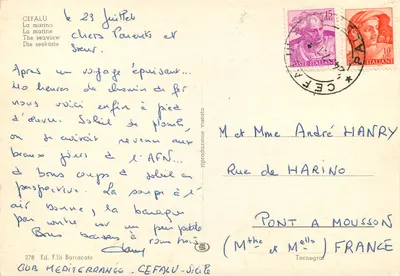 CEFALU
La marina
La marine
The seaview
Die seeküste
le 23 Juillet
Chers Parents et
Sœur.
Après un voyage épuisant...
40 heures de chemin de fer
nous voici enfin à pied
d'œuvre. Soleil de plomb,
on se croirait revenu aux
beaux jours à l'AFN...
et bons coups de soleil en
perspective. La soupe à l'
air bonne, la baraque
par contre est un peu petite
Bons baisers à vous trois
CLUB MEDITERRANEE - CEFALU - SICILE
278 Ed. F.lli Barracato
riproduzione vietata
Tecnograf
L. 15
POSTE ITALIANE
L. 10
POSTE ITALIANE
CEFALU
M et Mme André HANRY
Rue de HARINO
PONT A MOUSSON
(Mthe et Mlle) FRANCE